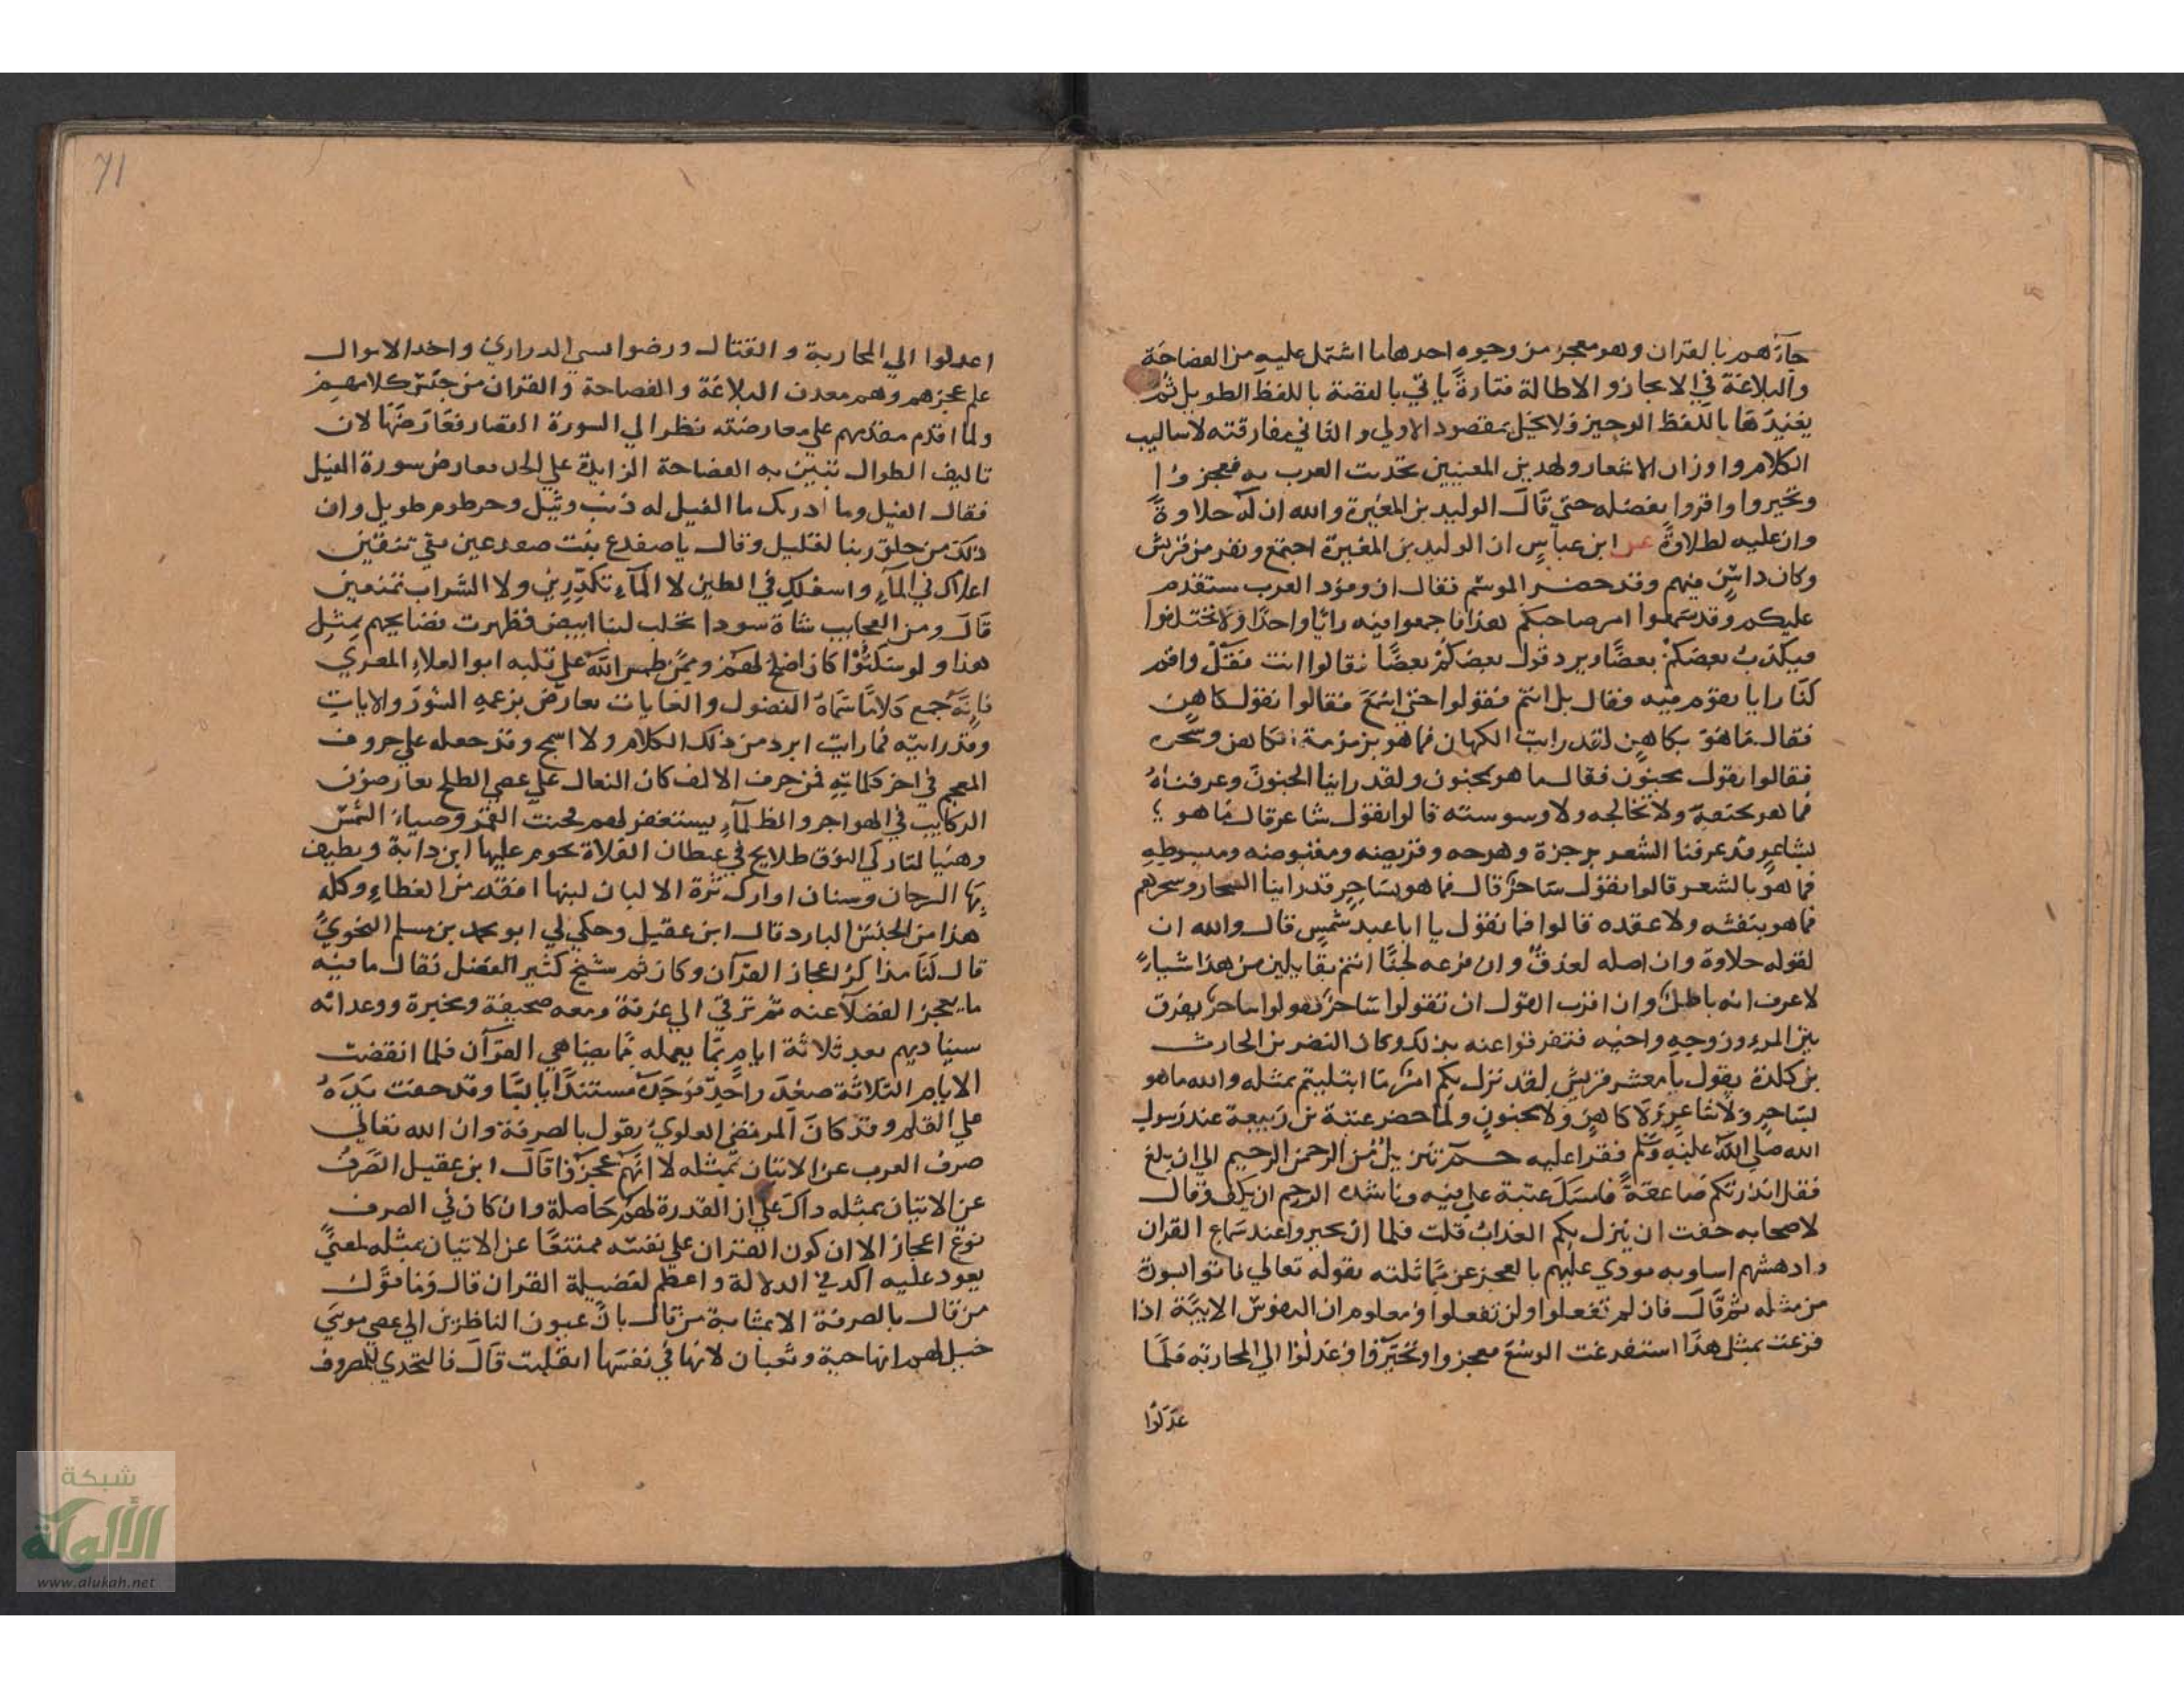 جآءهم بالقران وهو معجز من وجوه احدها ما اشتمل عليه من الفصاحة
والبلاغة في الايجاز والاطالة فتارةً ياتي بالقصة باللفظ الطويل ثم
يعيدها باللفظ الوجيز فلا يخل بمقصود الاولي والثاني مفارقته لاساليب
الكلام واوزان الاشعار ولهذين المعنيين تحديت العرب به فعجزوا
وتحيروا واقروا بفضله حتي قال الوليد بن المغيرة والله ان له حلاوةً
وان عليه لطلاوةً عن ابن عباس ان الوليد بن المغيرة اجتمع ونفر من قريش
وكان ذا سنٍ فيهم وقد حضر الموسم فقال ان وفود العرب ستقدم
عليكم وقد سمعوا امر صاحبكم هذا فاجمعوا فيه رايًا واحدًا ولا تختلفوا
فيكذب بعضكم بعضًا ويرد قول بعضكم بعضًا فقالوا انت فقل واقم
لنا رايا نقوم فيه فقال بل انتم فقولوا حتي اسمع فقالوا نقول كاهن
فقال ما هو بكاهن لقد رايت الكهان فما هو بزمزمة الكاهن وسحره
فقالوا نقول مجنون فقال ما هو بمجنون ولقد راينا الجنون وعرفناهُ
فما هو بخنقه ولا تخالجه ولا وسوسته قالوا نقول شاعر قال ما هو
بشاعرٍ قد عرفنا الشعر برجزة وهزجه وقريضه ومقبوضه ومبسوطهِ
فما هو بالشعر قالوا نقول ساحرٌ قال فما هو بساحرٍ قد راينا السحار وسحرهم
فما هو بنفثه ولا عقده قالوا فما نقول يا ابا عبد شمسٍ قال والله ان
لقوله حلاوة وان اصله لعذقٌ وان فرعه لجنًا انتم بقايلين من هذا شياءً
لا عرف انه باطلٌ وان اقرب القول ان تقولوا ساحرٌ تقولوا ساحرٌ يفرق
بين المرء وزوجهِ واخيه فتفرقوا عنه بذلك وكان النضر بن الحارث
بن كلدة يقول يا معشر قريش لقد نزل بكم امرٌ ما ابتليتم بمثله والله ما هو
بساحرٍ ولا شاعرٍ ولا كاهنٍ ولا مجنونٍ ولما حضر عتبة بن ربيعة عند رسول
الله صلي الله عليه وسلم فقرا عليه حم تنزيلٌ من الرحمن الرحيم الي ان بلغ
فقل انذرتكم صاعقةً فامسك عتبة علي فيه وناشده الرحم ان يكف وقال
لاصحابه خفت ان ينزل بكم العذاب قلت فلما ان تحيروا عند سماع القران
وادهشهم اسلوبه نودي عليهم بالعجز عن مماثلته بقوله تعالي فاتوا بسورة
من مثله ثم قال فان لم تفعلوا ولن تفعلوا ومعلوم ان النفوس الابيّة اذا
قرعت بمثل هذا استفرغت الوسع فعجزوا وتحيّروا وعدلوا الي المحاربة فلما
عدلوا
71
اعدلوا الي المحاربة والقتال ورضوا بسبي الدراري واخد الاموال
علم عجزهم وهم معدن البلاغة والفصاحة والقران من جنس كلامهم
ولما اقدم مقدمهم علي معارضته نظر الي السورة القصار فعارضها لان
تاليف الطوال تبين به الفضاحة الزايدة علي الحد فعارض سورة الفيل
فقال الفيل وما ادريك ما الفيل له ذنب وثيل وخرطوم طويل وان
ذلك من خلق ربنا لقليل وقال يا ضفدع بنت ضفدعين نقي ما تنقين
اعلاك في المآء واسفلك في الطين لا المآء تكدّرين ولا الشراب تمنعين
قال ومن العجايب شاة سودا تحلب لبنا ابيض فظهرت فضايحهم بمثل
هذا ولو سكتوا كان اصلح لهم وممن طمس الله علي قلبه ابو العلاء المعري
فانه جمع كلامًا سماه الفصول والغايات يعارض بزعمهِ السور والايات
وقد رايته فما رايت ابرد من ذلك الكلام ولا اسمج وقد جعله علي حروف
المعجم في اخر كلماته فمن حرف الالف كان النعال علي عصي الطلح يعارضون
الركايب في الهواجر والظلمآء يستغفر لهم قحنت القمر وضيآء الشمس
وهنيا لتاركي النوق طلايح في غيطان الفلاة يحوم عليها ابن داية ويطيف
بها السرحان وسنان اوارك ثرة الالبان لبنها افقد من الغطاءِ وكله
هذا من الجنس البارد قال ابن عقيل وحكي لي ابو محمد بن مسلم النحويّ
قال كنا نتذاكر اعجاز القرآن وكان ثم شيخ كثير الفضل فقال ما فيه
ما يعجز الفضلآ عنه ثم ترقي الي غرفة ومعه صحيفة ومحبرة ووعد انه
سيناديهم بعد ثلاثة ايام بما يعمله مما يضاهي القرآن فلما انقضت
الايام الثلاثة صعد واحدٌ فوجدَه مستندًا يابسًا وقد جفت يدهُ
علي القلم وقد كان المرتضي العلويُ يقول بالصرفة وان الله تعالي
صرف العرب عن الاتيان بمثله لا انهم عجزوا قال ابن عقيل الصَرفُ
عن الاتيان بمثله دآل علي ان القدرة لهم حاصلة وان كان في الصرف
نوع اعجاز الا ان كون القران علي نفسه ممتنعًا عن الاتيان بمثله لمعنيً
يعود عليه اكد في الدلالة واعظم لفضيلة القران قال وما قول
من قال بالصرفة الا بمثابة من قال بان عيون الناظرين الي عصي موسَي
خيل لهم انها حية وثعبان لا انها في نفسها انقلبت قال فالتحدي للمصروف
شبكة
الألوكة
www.alukah.net